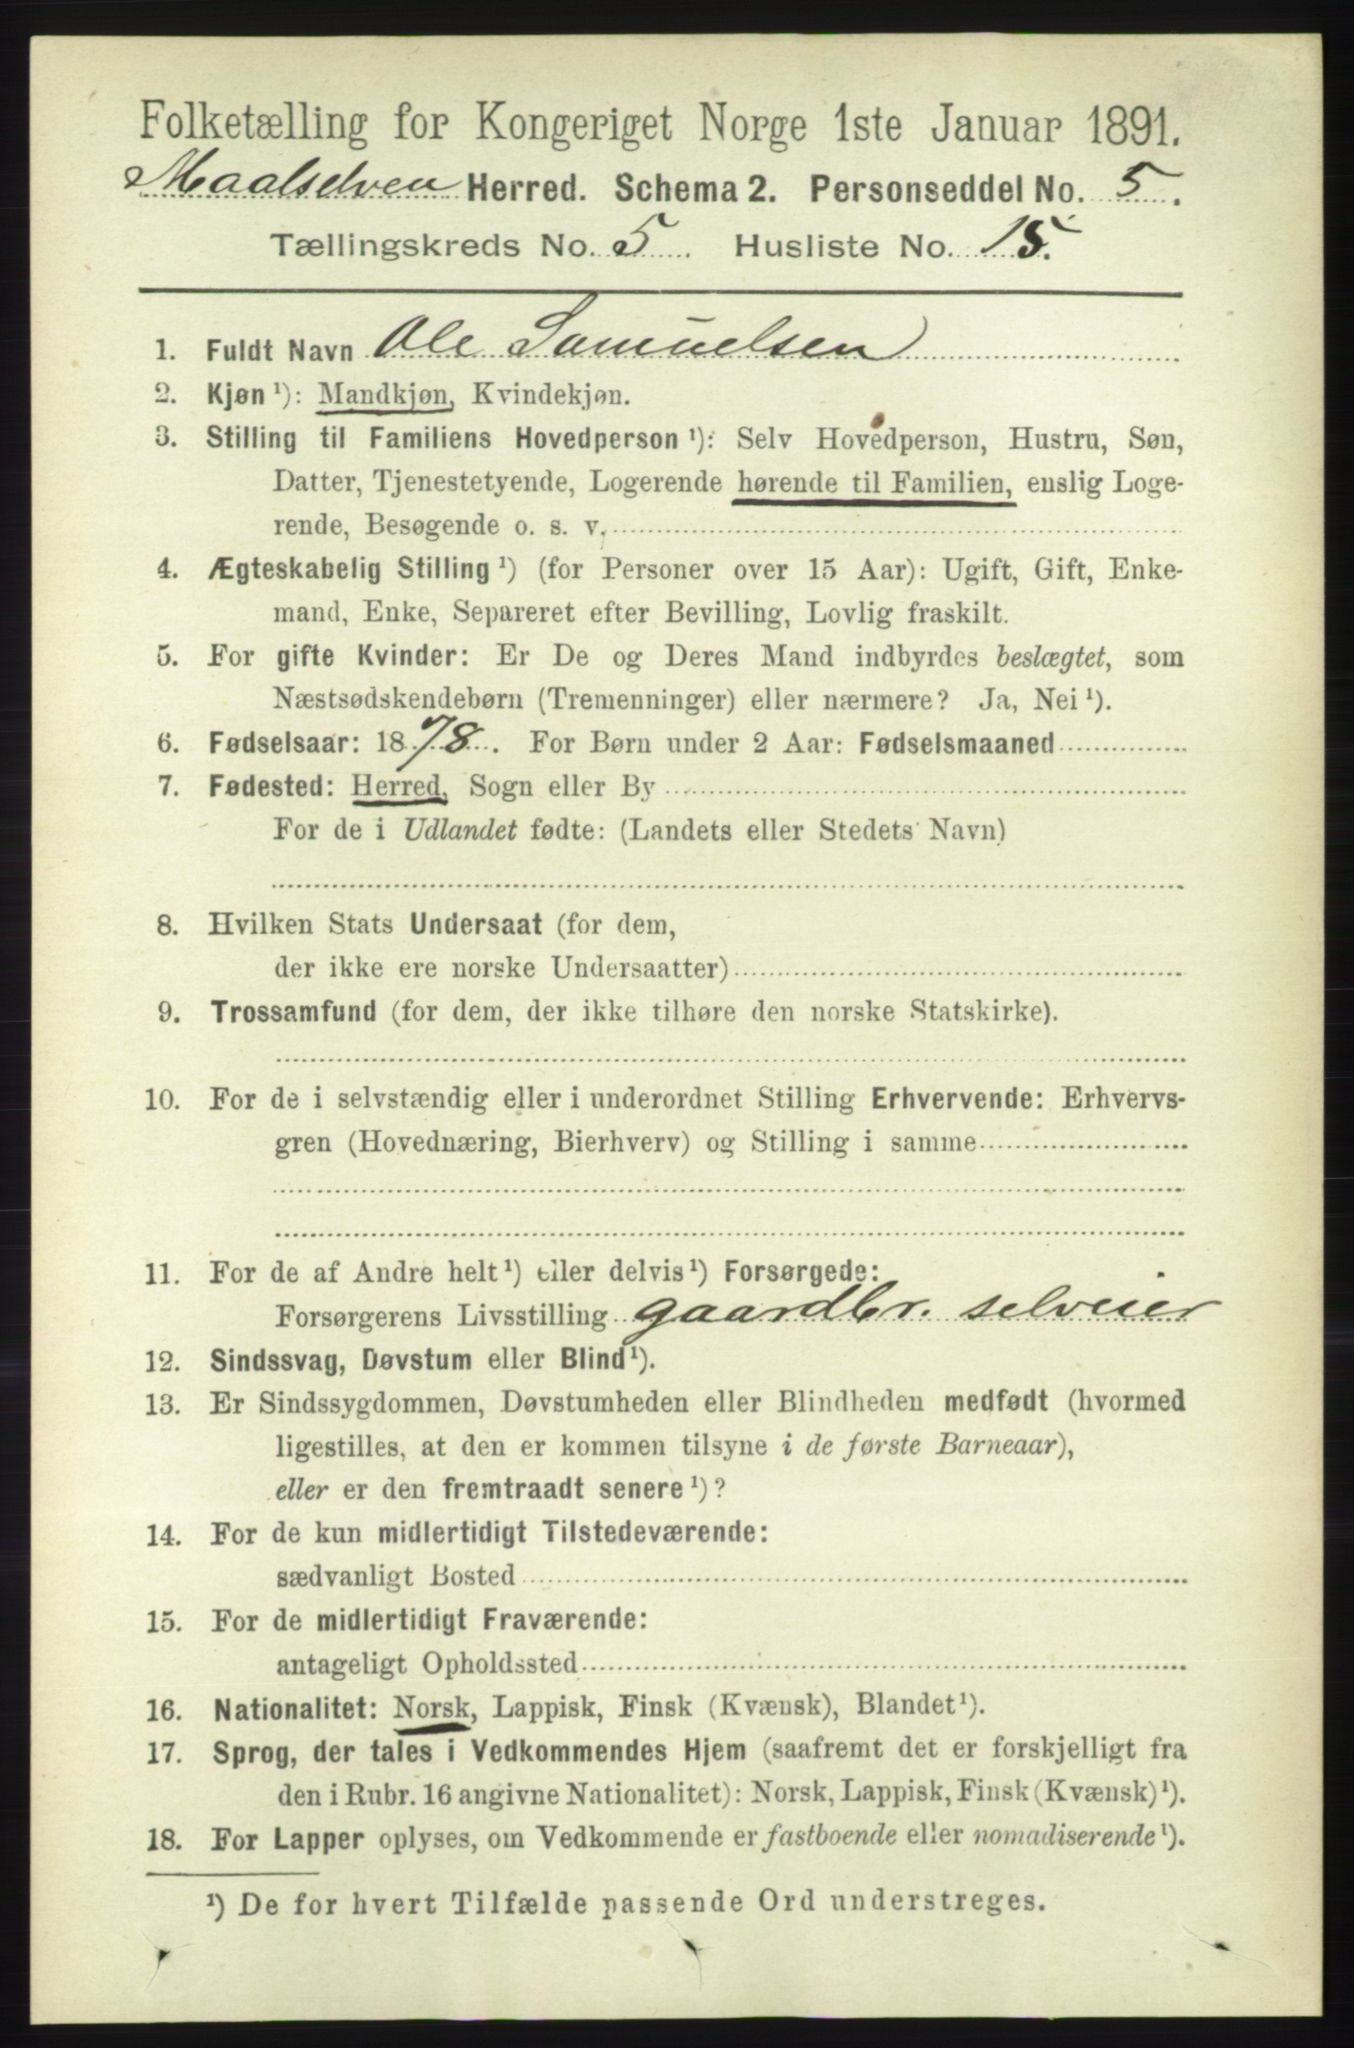 Folketælling for Kongeriget Norge 1ste Januar 1891.
Maalselven Herred. Schema 2. Personseddel No. 5.
Tællingskreds No. 5. Husliste No. 15.
1. Fuldt Navn Ole Samuelsen
2. Kjøn ¹): Mandkjøn, Kvindekjøn.
3. Stilling til Familiens Hovedperson ¹): Selv Hovedperson, Hustru, Søn,
Datter, Tjenestetyende, Logerende hørende til Familien, enslig Loge-
rende, Besøgende o. s. v.
4. Ægteskabelig Stilling ¹) (for Personer over 15 Aar): Ugift, Gift, Enke-
mand, Enke, Separeret efter Bevilling, Lovlig fraskilt.
5. For gifte Kvinder: Er De og Deres Mand indbyrdes beslægtet, som
Næstsødskendebørn (Tremenninger) eller nærmere? Ja, Nei ¹).
6. Fødselsaar: 1878. For Børn under 2 Aar: Fødselsmaaned
7. Fødested: Herred, Sogn eller By
For de i Udlandet fødte: (Landets eller Stedets Navn)
8. Hvilken Stats Undersaat (for dem,
der ikke ere norske Undersaatter)
9. Trossamfund (for dem, der ikke tilhøre den norske Statskirke).
10. For de i selvstændig eller i underordnet Stilling Erhvervende: Erhvervs-
gren (Hovednæring, Bierhverv) og Stilling i samme
11. For de af Andre helt ¹) eller delvis ¹) Forsørgede:
Forsørgerens Livsstilling gaardbr. selveier
12. Sindssvag, Døvstum eller Blind ¹).
13. Er Sindssygdommen, Døvstumheden eller Blindheden medfødt (hvormed
ligestilles, at den er kommen tilsyne i de første Barneaar),
eller er den fremtraadt senere ¹)?
14. For de kun midlertidigt Tilstedeværende:
sædvanligt Bosted
15. For de midlertidigt Fraværende:
antageligt Opholdssted
16. Nationalitet: Norsk, Lappisk, Finsk (Kvænsk), Blandet ¹).
17. Sprog, der tales i Vedkommendes Hjem (saafremt det er forskjelligt fra
den i Rubr. 16 angivne Nationalitet): Norsk, Lappisk, Finsk (Kvænsk) ¹).
18. For Lapper oplyses, om Vedkommende er fastboende eller nomadiserende ¹).
¹) De for hvert Tilfælde passende Ord understreges.